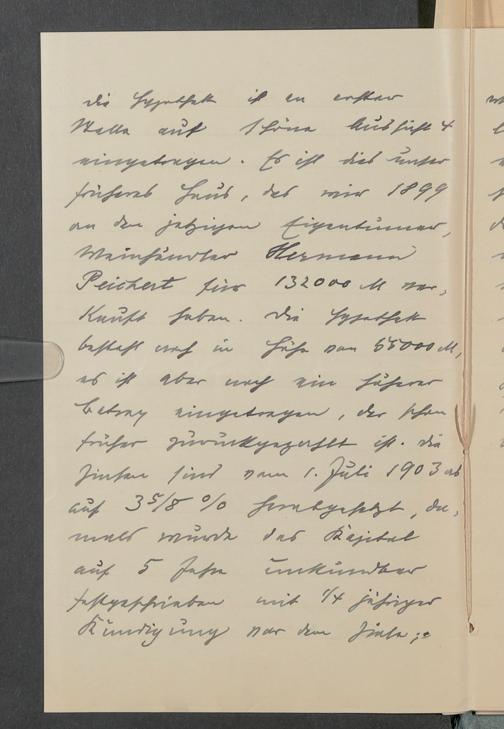 Die Hypothek ist an erster
Stelle auf Schöne Aussicht 4
eingetragen. Es ist dies unser
früheres Haus, das wir 1899
an den jetzigen Eigentümer,
Weinhändler Hermann
Peichert für 132000 M ver,
kauft haben. Die Hypothek
besteht noch in Höhe von 55000 M,
es ist aber noch ein höherer
Betrag eingetragen, der schon
früher zurückgezahlt ist. Die
Zinsen sind vom 1. Juli 1903 ab
auf 3 5/8 % herabgesetzt, da,
mals wurde das Kapital
auf 5 Jahre unkündbar
festgeschrieben mit 1/4 jähriger
Kündigung vor dem Ziele;